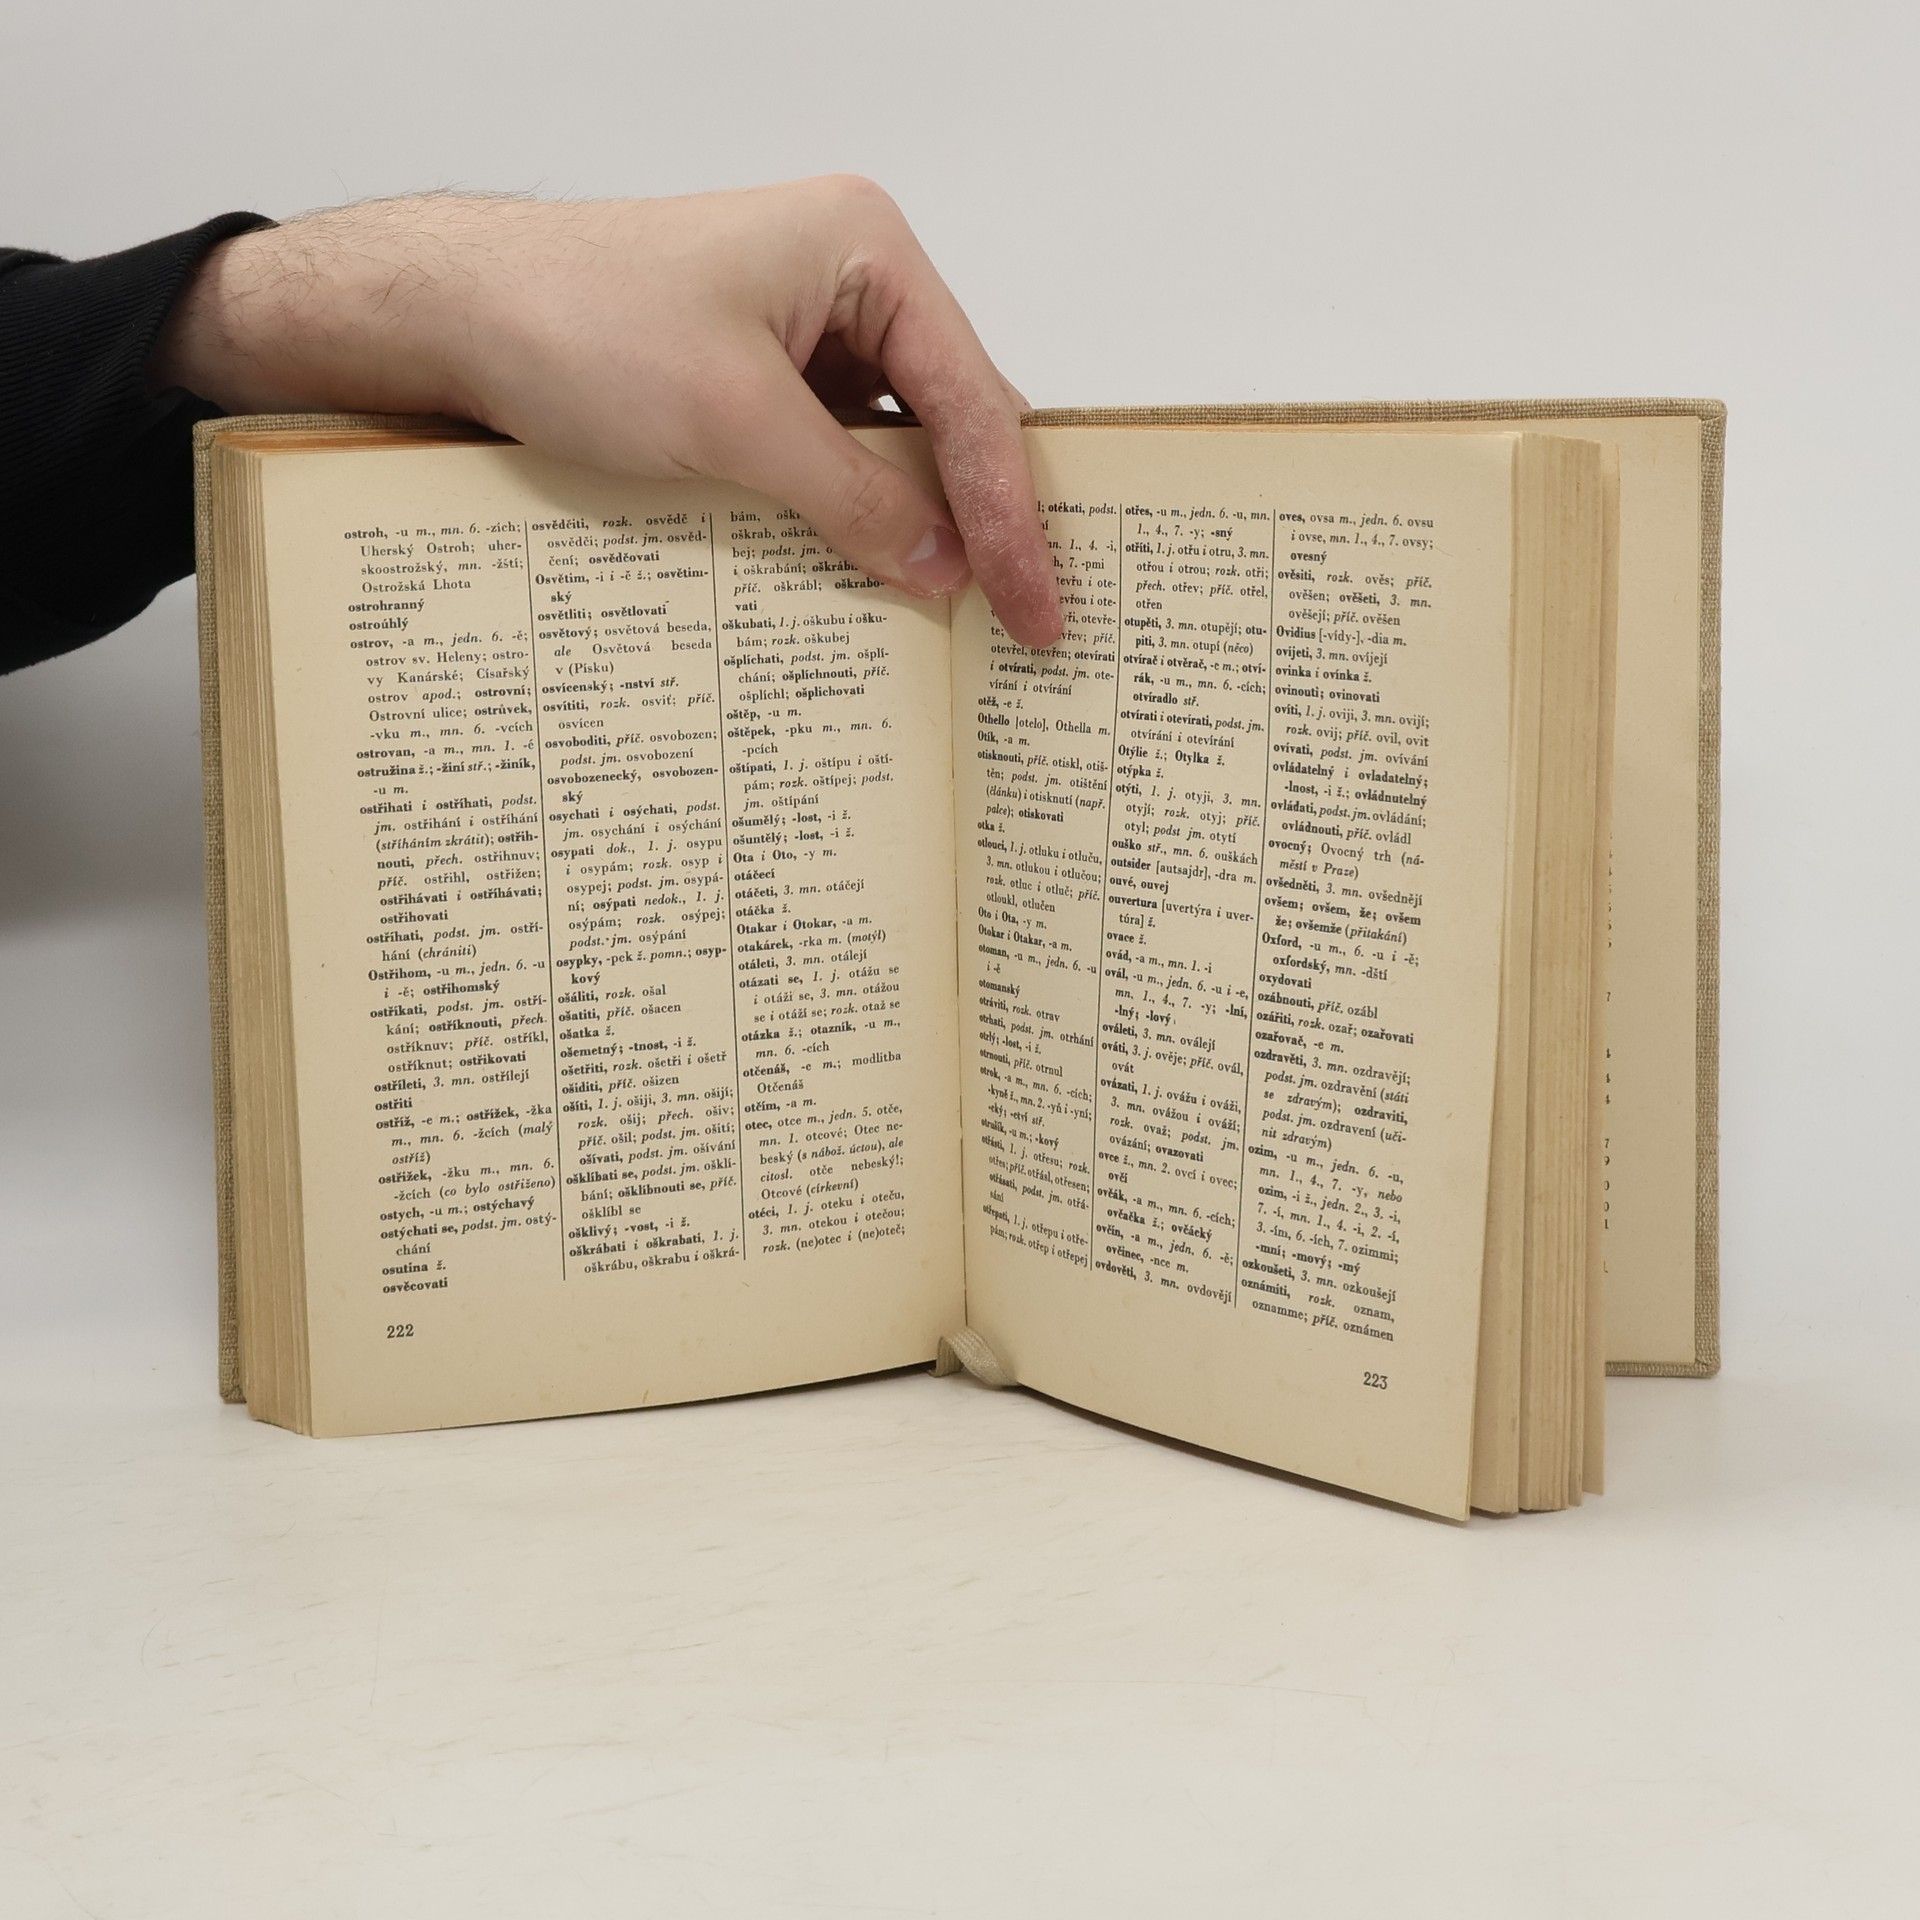 ostroh, -u m., mn. 6. -zích;
Uherský Ostroh; uher-
skoostrožský, mn. -žští;
Ostrožská Lhota
ostrohranný
ostroúhlý
ostrov, -a m., jedn. 6. -ě;
ostrov sv. Heleny; ostro-
vy Kanárské; Císařský
ostrov apod.; ostrovní;
Ostrovní ulice; ostrůvek,
-vku m., mn. 6. -vcích
ostrovan, -a m., mn. 1. -é
ostružina ž.; -žiní stř.; -žiník,
-u m.
ostřihati i ostříhati, podst.
jm. ostřihání i ostříhání
(stříháním zkrátit); ostřih-
nouti, přech. ostřihnuv;
příč. ostřihl, ostřižen;
ostřihávati i ostříhávati;
ostřihovati
ostříhati, podst. jm. ostří-
hání (chrániti)
Ostřihom, -u m., jedn. 6. -u
i -ě; ostřihomský
ostříkati, podst. jm. ostří-
kání; ostříknouti, přech.
ostříknuv; příč. ostříkl,
ostříknut; ostřikovati
ostříleti, 3. mn. ostřílejí
ostřiti
ostříž, -e m.; ostřížek, -žka
m., mn. 6. -žcích (malý
ostříž)
ostřižek, -žku m., mn. 6.
-žcích (co bylo ostřiženo)
ostych, -u m.; ostýchavý
ostýchati se, podst. jm. ostý-
chání
osutina ž.
osvěcovati
osvědčiti, rozk. osvědč i
osvědči; podst. jm. osvěd-
čení; osvědčovati
Osvětim, -i i -ě ž.; osvětim-
ský
osvětliti; osvětlovati
osvětový; osvětová beseda,
ale Osvětová beseda
v (Písku)
osvícenský; -nství stř.
osvítiti, rozk. osviť; příč.
osvícen
osvoboditi, příč. osvobozen;
podst. jm. osvobození
osvobozenecký, osvobozen-
ský
osychati i osýchati, podst.
jm. osychání i osýchání
osypati dok., 1. j. osypu
i osypám; rozk. osyp i
osypej; podst. jm. osypá-
ní; osýpati nedok., 1. j.
osýpám; rozk. osýpej;
podst. jm. osýpání
osypky, -pek ž. pomn.; osyp-
kový
ošáliti, rozk. ošal
ošatiti, příč. ošacen
ošatka ž.
ošemetný; -tnost, -i ž.
ošetřiti, rozk. ošetři i ošetř
ošiditi, příč. ošizen
ošíti, 1. j. ošiji, 3. mn. ošijí;
rozk. ošij; přech. ošiv;
příč. ošil; podst. jm. ošití;
ošívati, podst. jm. ošívání
ošklíbati se, podst. jm. ošklí-
bání; ošklíbnouti se, příč.
ošklíbl se
ošklivý; -vost, -i ž.
oškrábati i oškrabati, 1. j.
oškrábu, oškrabu i oškrá-
bám,
oškrab,
bej; podst. jm.
i oškrabání;
příč. oškrábl; oškrabo-
vati
oškubati, 1. j. oškubu i ošku-
bám; rozk. oškubej
ošplíchati, podst. jm. ošplí-
chání; ošplíchnouti, příč.
ošplíchl; ošplichovati
oštěp, -u m.
oštěpek, -pku m., mn. 6.
-pcích
oštípati, 1. j. oštípu i oští-
pám; rozk. oštípej; podst.
jm. oštípání
ošumělý; -lost, -i ž.
ošuntělý; -lost, -i ž.
Ota i Oto, -y m.
otáčecí
otáčeti, 3. mn. otáčejí
otáčka ž.
Otakar i Otokar, -a m.
otakárek, -rka m. (motýl)
otáleti, 3. mn. otálejí
otázati se, 1. j. otážu se
i otáži se, 3. mn. otážou
se i otáží se; rozk. otaž se
otázka ž.; otazník, -u m.,
mn. 6. -cích
otčenáš, -e m.; modlitba
Otčenáš
otčím, -a m.
otec, otce m., jedn. 5. otče,
mn. 1. otcové; Otec ne-
beský (s nábož. úctou), ale
citosl. otče nebeský!;
Otcové (církevní)
otéci, 1. j. oteku i oteču,
3. mn. otekou i otečou;
rozk. (ne)otec i (ne)oteč;
222
otékati, podst.
mn. 1., 4. -i,
7. -pmi
otevřu i ote-
otevřou i ote-
otevře-
te; příč.
otevřel, otevřen; otevírati
i otvírati, podst. jm. ote-
vírání i otvírání
otěž, -e ž.
Othello [otelo], Othella m.
Otík, -a m.
otisknouti, příč. otiskl, otiš-
těn; podst. jm. otištění
(článku) i otisknutí (např.
palce); otiskovati
otka ž.
otlouci, 1. j. otluku i otluču,
3. mn. otlukou i otlučou;
rozk. otluc i otluč; příč.
otloukl, otlučen
Oto i Ota, -y m.
Otokar i Otakar, -a m.
otoman, -u m., jedn. 6. -u
i -ě
otomanský
otráviti, rozk. otrav
otrhati, podst. jm. otrhání
otrlý; -lost, -i ž.
otrnouti, příč. otrnul
otrok, -a m., mn. 6. -cích;
-kyně ž., mn. 2. -yň i -yní;
-cký; -ctví stř.
otrušík, -u m.; -kový
otřásti, 1. j. otřesu; rozk.
otřes; příč. otřásl, otřesen;
otřásati, podst. jm. otřá-
sání
otřepati, 1. j. otřepu i otře-
pám; rozk. otřep i otřepej
otřes, -u m., jedn. 6. -u, mn.
1., 4., 7. -y; -sný
otříti, 1. j. otřu i otru, 3. mn.
otřou i otrou; rozk. otři;
přech. otřev; příč. otřel,
otřen
otupěti, 3. mn. otupějí; otu-
piti, 3. mn. otupí (něco)
otvírač i otvěrač, -e m.; otví-
rák, -u m., mn. 6. -cích;
otvíradlo stř.
otvírati i otevírati, podst. jm.
otvírání i otevírání
Otýlie ž.; Otylka ž.
otýpka ž.
otýti, 1. j. otyji, 3. mn.
otyjí; rozk. otyj; příč.
otyl; podst jm. otytí
ouško stř., mn. 6. ouškách
outsider [autsajdr], -dra m.
ouvé, ouvej
ouvertura [uvertýra i uver-
túra] ž.
ovace ž.
ovád, -a m., mn. 1. -i
ovál, -u m., jedn. 6. -u i -e,
mn. 1., 4., 7. -y; -lní,
-lný; -lový
ováleti, 3. mn. oválejí
ováti, 3. j. ověje; příč. ovál,
ovát
ovázati, 1. j. ovážu i ováži,
3. mn. ovážou i ováží;
rozk. ovaž; podst. jm.
ovázání; ovazovati
ovce ž., mn. 2. ovcí i ovec;
ovčí
ovčák, -a m., mn. 6. -cích;
ovčačka ž.; ovčácký
ovčín, -a m., jedn. 6. -ě;
ovčinec, -nce m.
ovdověti, 3. mn. ovdovějí
oves, ovsa m., jedn. 6. ovsu
i ovse, mn. 1., 4., 7. ovsy;
ovesný
ověsiti, rozk. ověs; příč.
ověšen; ověšeti, 3. mn.
ověšejí; příč. ověšen
Ovidius [-vídy-], -dia m.
ovíjeti, 3. mn. ovíjejí
ovinka i ovínka ž.
ovinouti; ovinovati
ovíti, 1. j. oviji, 3. mn. ovijí;
rozk. ovij; příč. ovil, ovit
ovívati, podst. jm. ovívání
ovládatelný i ovladatelný;
-lnost, -i ž.; ovládnutelný
ovládati, podst. jm. ovládání;
ovládnouti, příč. ovládl
ovocný; Ovocný trh (ná-
městí v Praze)
ovšedněti, 3. mn. ovšednějí
ovšem; ovšem, že; ovšem
že; ovšemže (přitakání)
Oxford, -u m., 6. -u i -ě;
oxfordský, mn. -dští
oxydovati
ozábnouti, příč. ozábl
ozářiti, rozk. ozař; ozařovati
ozařovač, -e m.
ozdravěti, 3. mn. ozdravějí;
podst. jm. ozdravění (státi
se zdravým); ozdraviti,
podst. jm. ozdravení (uči-
nit zdravým)
ozim, -u m., jedn. 6. -u,
mn. 1., 4., 7. -y, nebo
ozim, -i ž., jedn. 2., 3. -i,
7. -í, mn. 1., 4. -i, 2. -í,
3. -ím, 6. -ích, 7. ozimmi;
-mní; -mový; -mý
ozkoušeti, 3. mn. ozkoušejí
oznámiti, rozk. oznam,
oznamme; příč. oznámen
223